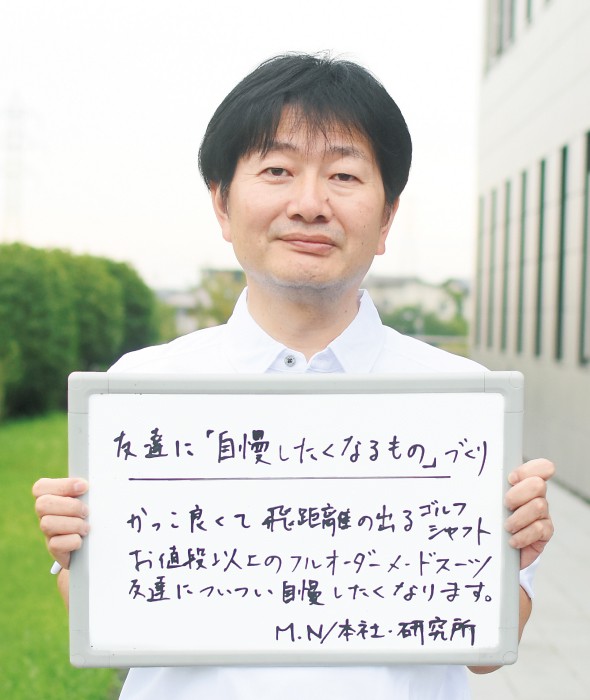 友達に「自慢したくなるもの」づくり
かっこ良くて飛距離の出るゴルフシャフト
お値段以上のフルオーダーメードスーツ
友達についつい自慢したくなります。
M.N/本社・研究所